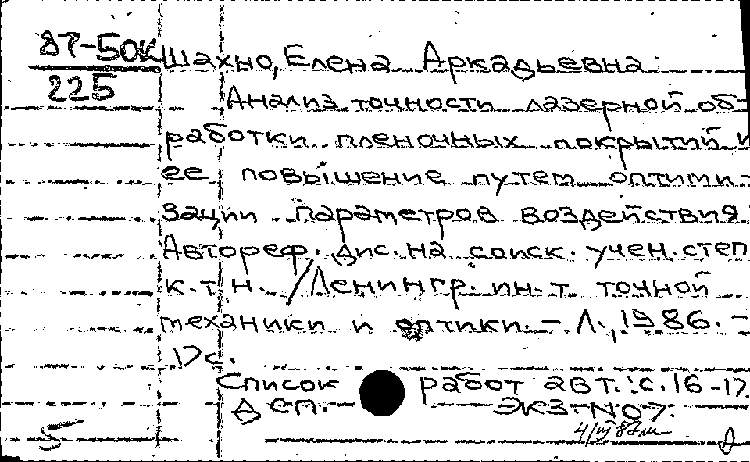 87-50К Шахно, Елена Аркадьевна
225
Анализ точности лазерной об-
работки пленочных покрытий и
ее повышение путем оптими-
зации параметров воздействия.
Автореф. дис. на соиск. учен. степ
к.т.н. / Ленингр. ин-т точной
механики и оптики. - Л., 1986. -
17с.
Список работ авт.: с. 16-17.
Дсп. - Экз-N07.
5